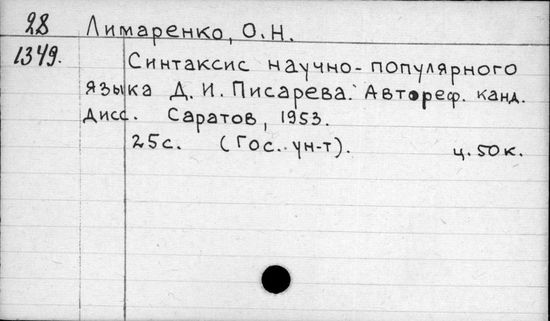 28 Лимаренко, О.Н.
1349. Синтаксис научно-популярного
языка Д.И. Писарева. Автореф. канд.
дисс. Саратов, 1953.
25с. (Гос. ун-т). ц. 50к.